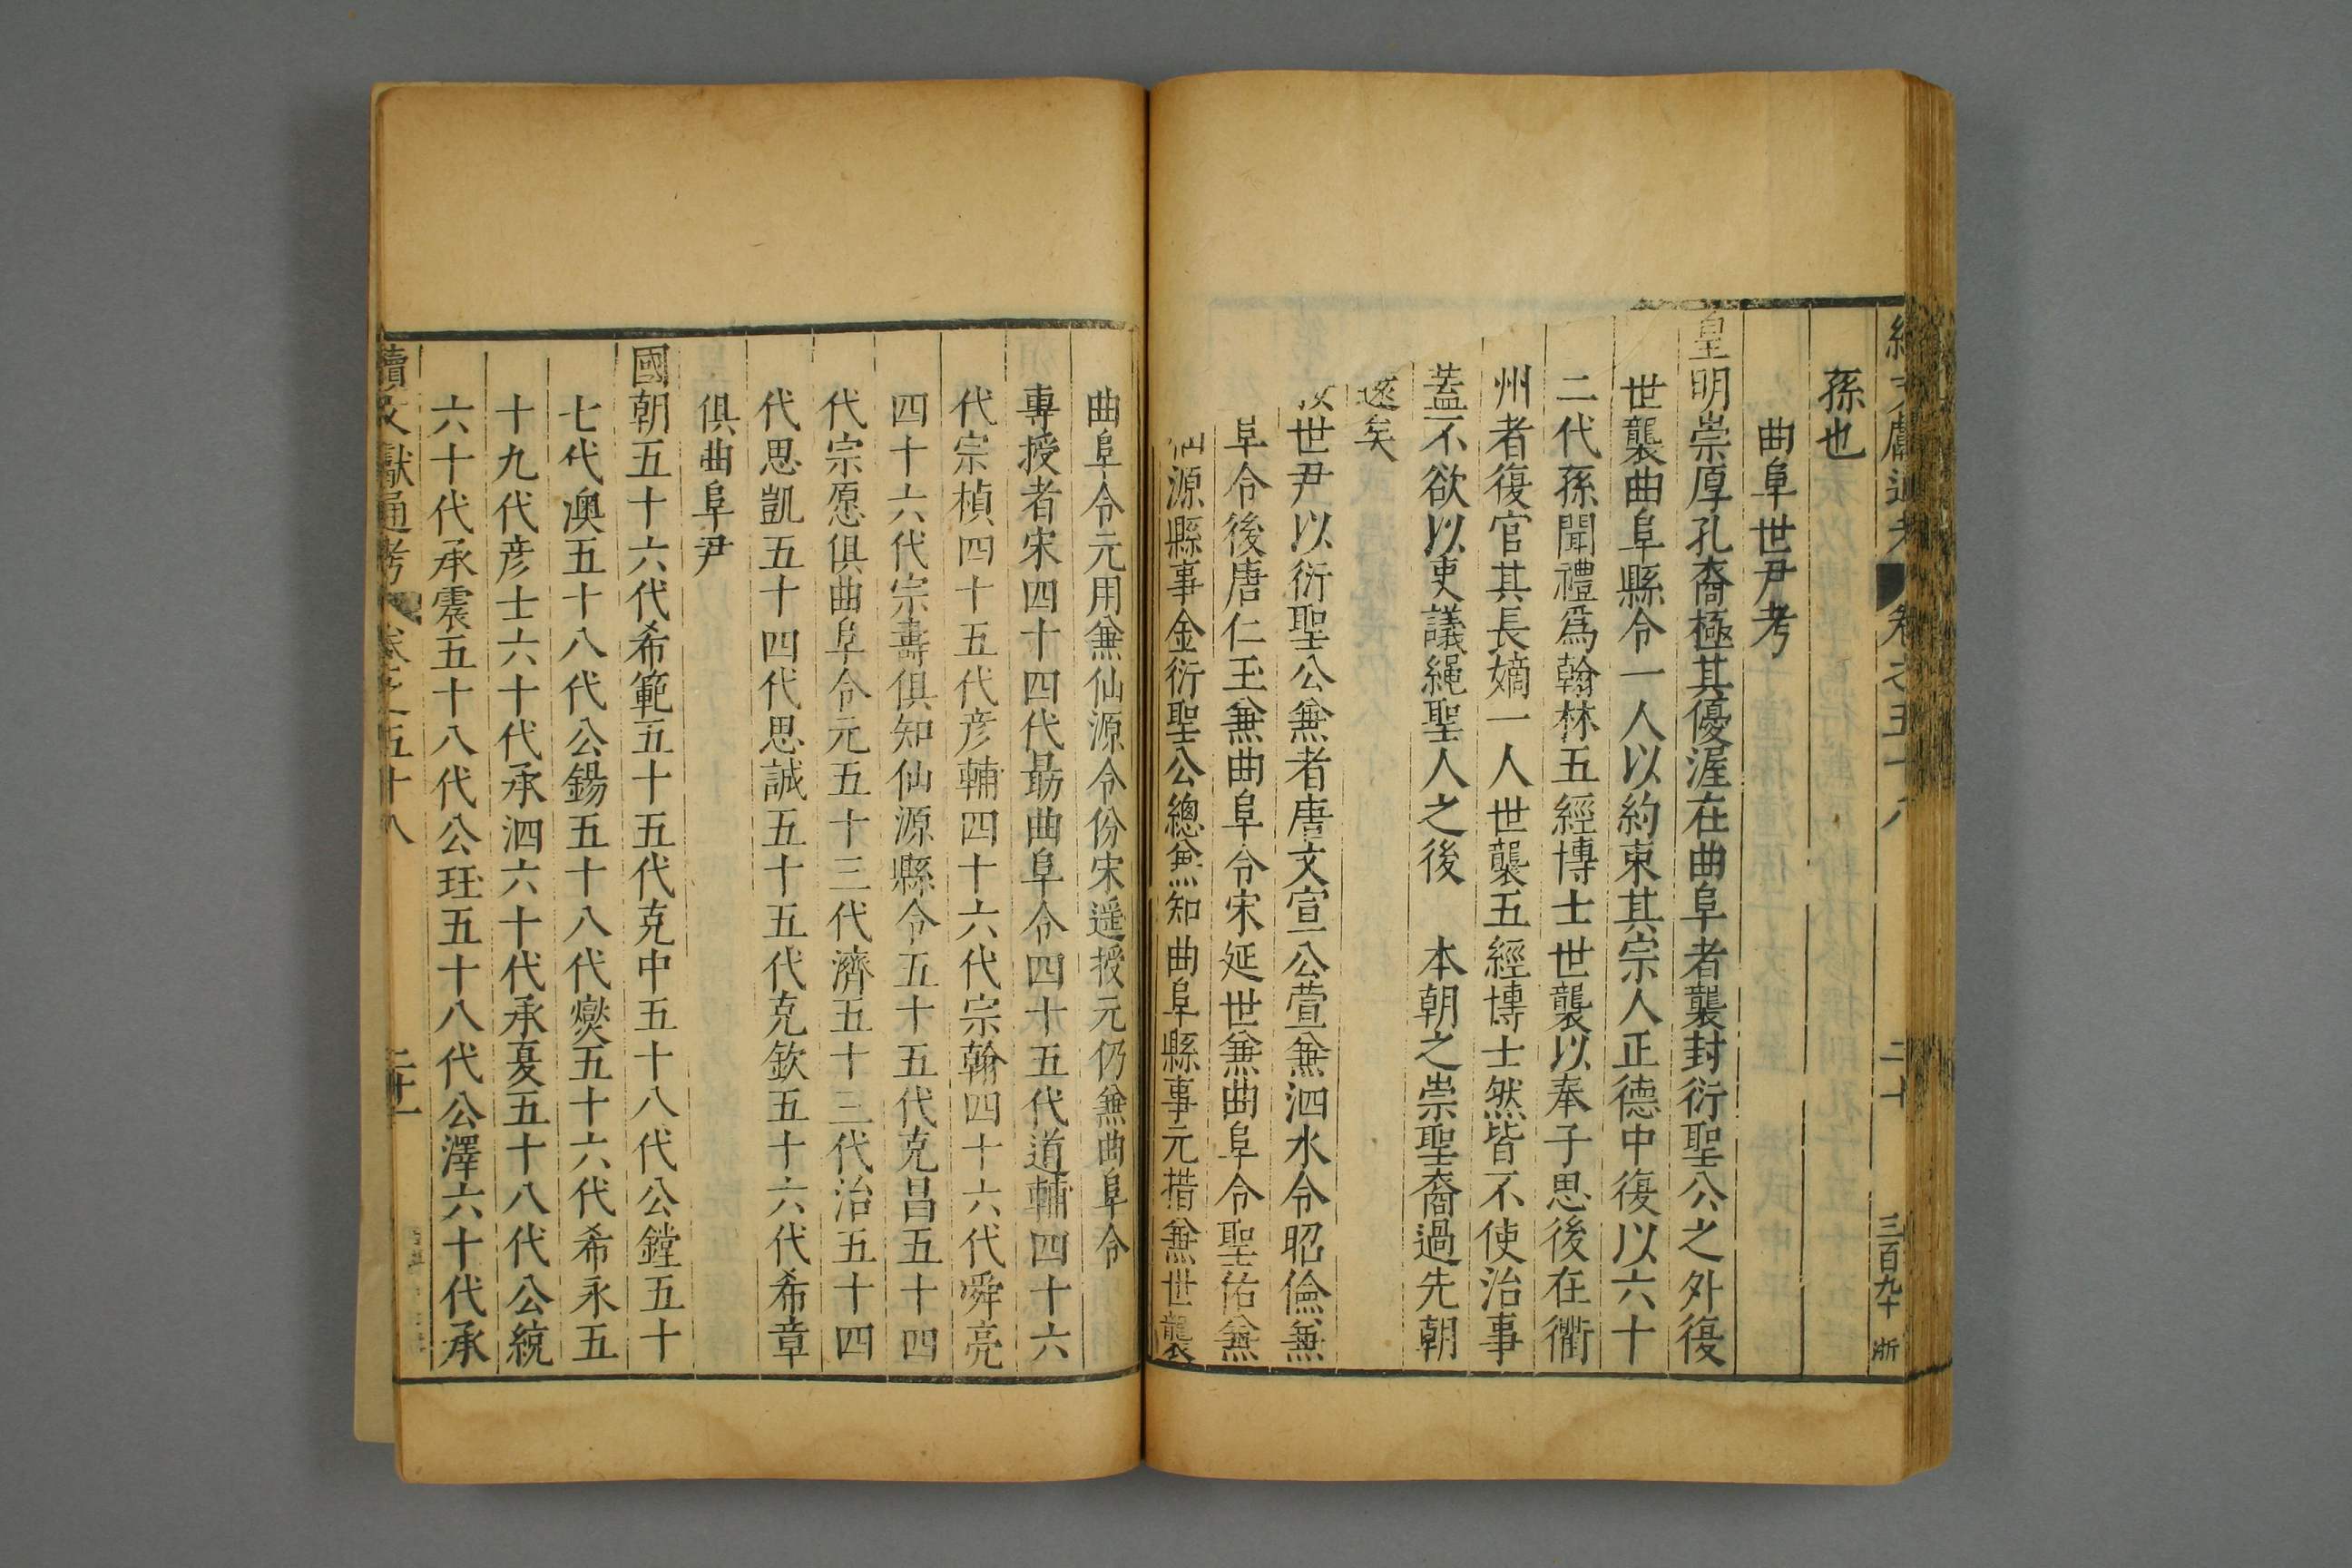 續文獻通考 卷之五十八 二十 三百九十 浙
孫也
曲阜世尹考
皇明崇厚孔裔極其優渥在曲阜者襲封衍聖公之外復
世襲曲阜縣令一人以約束其宗人正德中復以六十
二代孫聞禮爲翰林五經博士世襲以奉子思後在衢
州者復官其長嫡一人世襲五經博士然皆不使治事
蓋不欲以吏議繩聖人之後　本朝之崇聖裔過先朝
遠矣
世尹以衍聖公兼者唐文宣公萱兼泗水令昭儉兼
阜令後唐仁玉兼曲阜令宋延世兼曲阜令聖佑兼
仙源縣事金衍聖公總兼知曲阜縣事元措兼世襲
曲阜令元用兼仙源令份宋遥授元仍兼曲阜令
專授者宋四十四代勗曲阜令四十五代道輔四十六
代宗楨四十五代彦輔四十六代宗翰四十六代舜亮
四十六代宗壽俱知仙源縣令五十五代克昌五十四
代宗愿俱曲阜令元五十三代濟五十三代治五十四
代思凱五十四代思誠五十五代克欽五十六代希章
俱曲阜尹
國朝五十六代希範五十五代克中五十八代公鏜五十
七代澳五十八代公錫五十八代爕五十六代希永五
十九代彦士六十代承泗六十代承夏五十八代公統
六十代承震五十八代公珏五十八代公澤六十代承
續文獻通考 卷之五十八 二十一